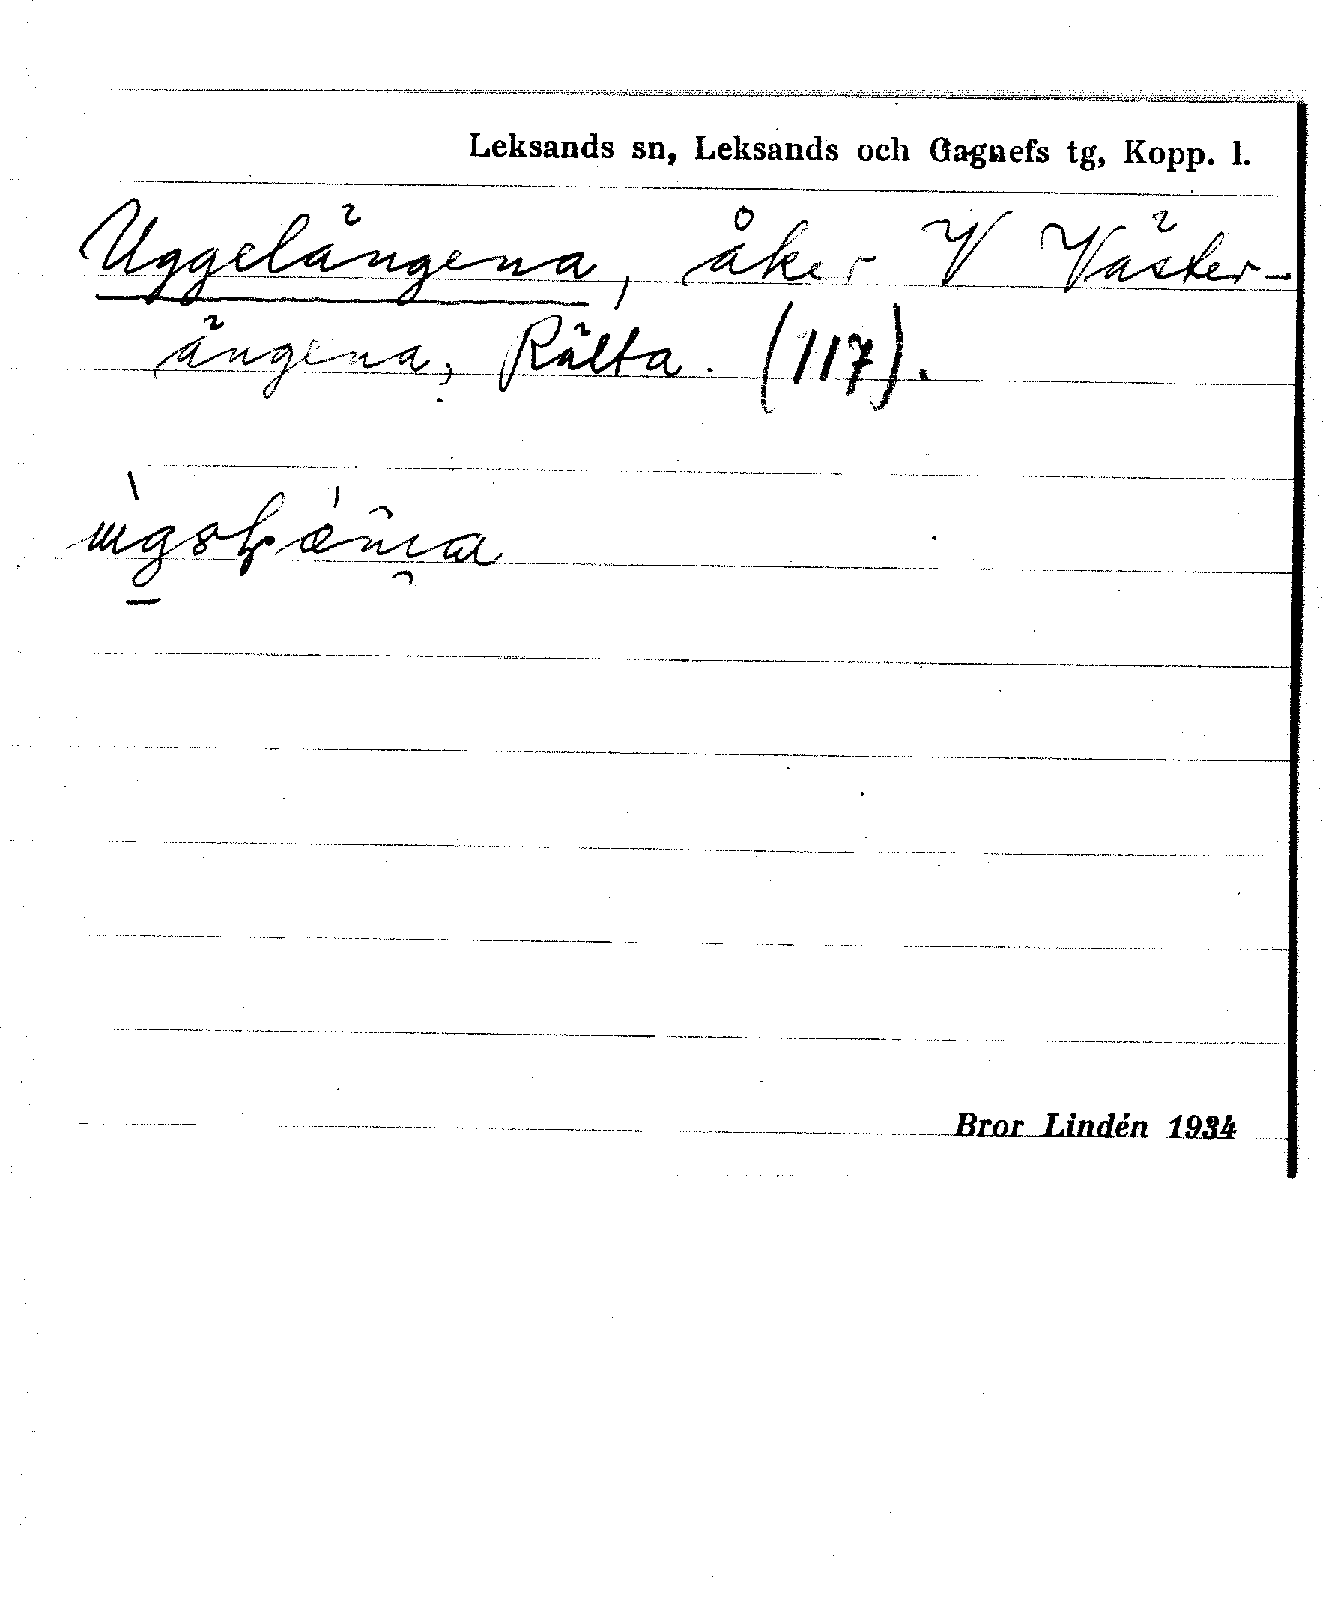 Leksands sn, Leksands och Gagnefs tg, Kopp. l.
Uggelängena, åker V Väster-
ängena, Rälta. (117).
Bror Lindén 1934